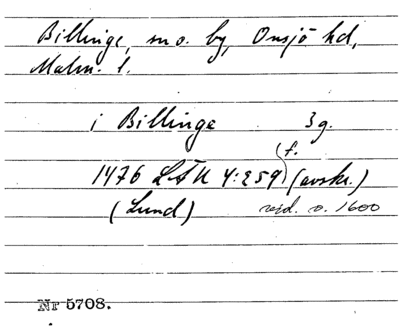 Billinge, sn o. by, Onsjö hd,
Malm. l.
i Billinge 3 g.
f.
1476 LÄU 4:259 (avskr.)
(Lund) vid. o. 1600
Nr 5708.